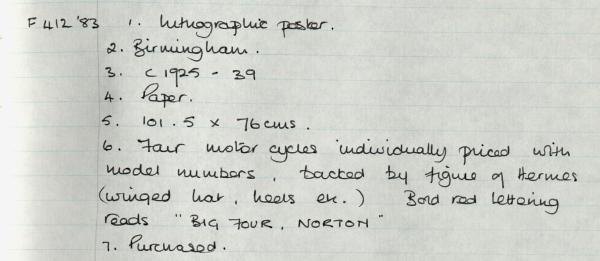 F 412 '83 1. Lithographic poster.
2. Birmingham.
3. C 1925 - 39
4. Paper.
5. 101.5 x 76 cms.
6. Four motor cycles individually priced with
model numbers, backed by figure of Hermes
(winged hat, heels etc.) Bold red lettering
reads "BIG FOUR, NORTON"
7. Purchased.